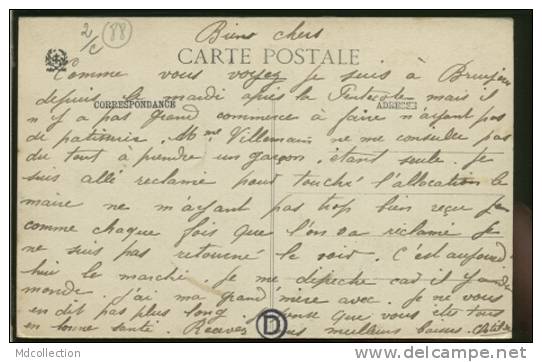 2/c
(88)
Biens chers
CARTE POSTALE
Comme vous voyez je suis à Bruyères
CORRESPONDANCE
ADRESSE
depuis le mardi après la Pentecote mais il
n'y a pas grand commerce à faire n'ayant pas
de patissier. Mme Villemain ne me conseille pas
du tout à prendre un garçon, étant seule. Je
suis allé reclamé pour touché l'allocation le
maire ne m'ayant pas trop bien reçu
comme chaque fois que l'on va reclamé je
ne suis pas retourné le voir. C'est aujourd
hui le marché je me dépeche car il y a du
monde. J'ai ma grand'mère avec. Je ne vous
en dit pas plus long. que vous ete tous
en bonne santé. Recevez mes meilleurs baisers.
D
Mdcollection
http://www.delcampe.net